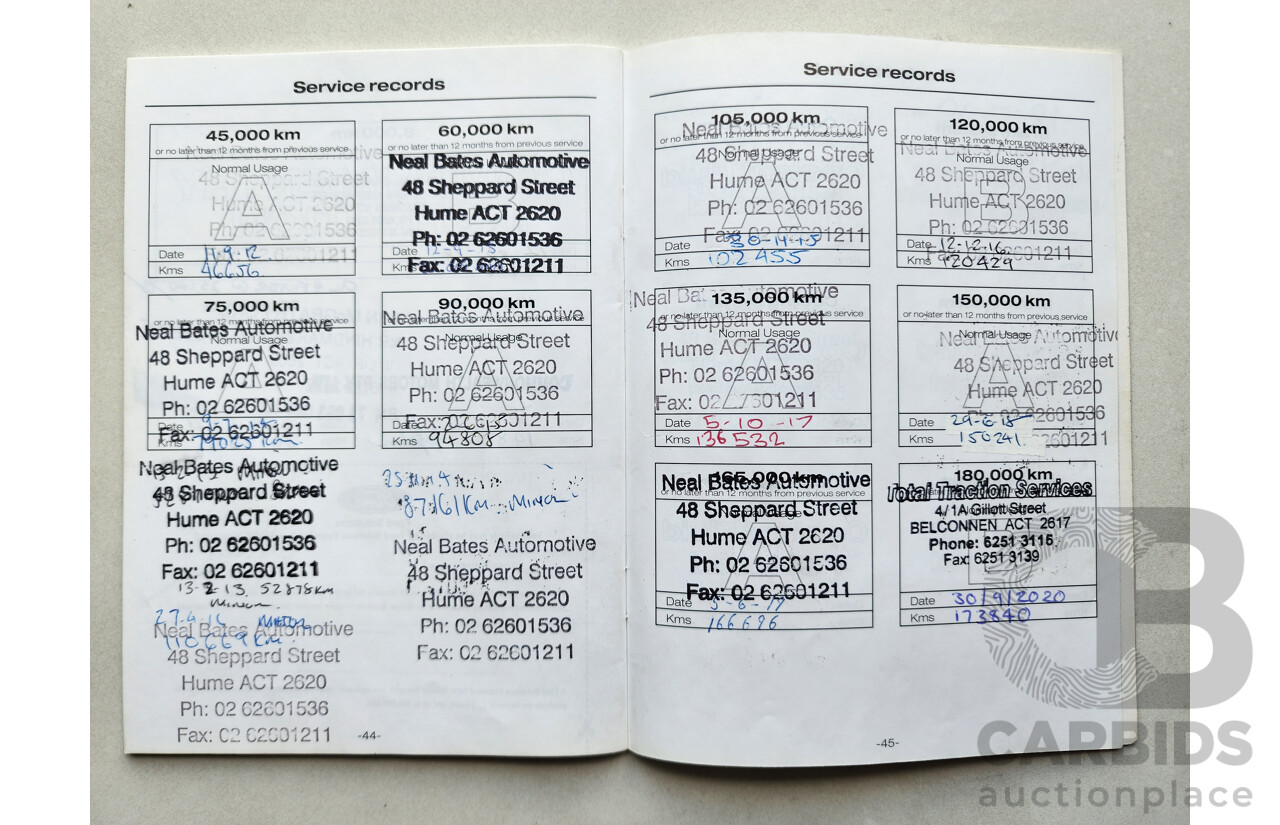 Service records
45,000 km
or no later than 12 months from previous service
Normal Usage
48 Sheppard Street
Hume ACT 2620
Ph: 02 62601536
Fax: 02 62601211
A
Date 11.9.12
Kms 46656
60,000 km
or no later than 12 months from previous service
Neal Bates Automotive
48 Sheppard Street
Hume ACT 2620
B
Ph: 02 62601536
Date
Fax: 02 62601211
Kms
75,000 km
or no later than 12 months from previous service
Neal Bates Automotive
Normal Usage
48 Sheppard Street
Hume ACT 2620
A
Ph: 02 62601536
Date
Fax: 02 62601211
Kms
90,000 km
Neal Bates Automotive
Normal Usage
48 Sheppard Street
Hume ACT 2620
A
Ph: 02 62601536
Fax: 02 62601211
Date
Kms 94808
Neal Bates Automotive
48 Sheppard Street
Hume ACT 2620
Ph: 02 62601536
Fax: 02 62601211
13-2-13. 52878km
Minor
27.4.16 Minor
110669km
Neal Bates Automotive
48 Sheppard Street
Hume ACT 2620
Ph: 02 62601536
Fax: 02 62601211
87161km Minor
Neal Bates Automotive
48 Sheppard Street
Hume ACT 2620
Ph: 02 62601536
Fax: 02 62601211
-44-
Service records
105,000 km
or no later than 12 months from previous service
Neal Bates Automotive
Normal Usage
48 Sheppard Street
Hume ACT 2620
A
Ph: 02 62601536
Fax: 02 62601211
Date
Kms 102455
120,000 km
or no later than 12 months from previous service
Neal Bates Automotive
Normal Usage
48 Sheppard Street
Hume ACT 2620
B
Ph: 02 62601536
Date 12-12-16
Fax: 02 62601211
Kms 120429
135,000 km
or no later than 12 months from previous service
Neal Bates Automotive
48 Sheppard Street
Normal Usage
Hume ACT 2620
A
Ph: 02 62601536
Fax: 02 62601211
Date 5-10-17
Kms 136532
150,000 km
or no later than 12 months from previous service
Neal Bates Automotive
Normal Usage
48 Sheppard Street
Hume ACT 2620
A
Ph: 02 62601536
Date 29-6-18
Kms 150241
62601211
165,000 km
Neal Bates Automotive
or no later than 12 months from previous service
48 Sheppard Street
Normal Usage
Hume ACT 2620
A
Ph: 02 62601536
Fax: 02 62601211
Date
Kms 166696
180,000 km
Total Traction Services
4/1A Gillott Street
BELCONNEN ACT 2617
Phone: 6251 3116
Fax: 6251 3139
Date 30/9/2020
Kms 173840
-45-
CB
CARBIDS
auctionplace